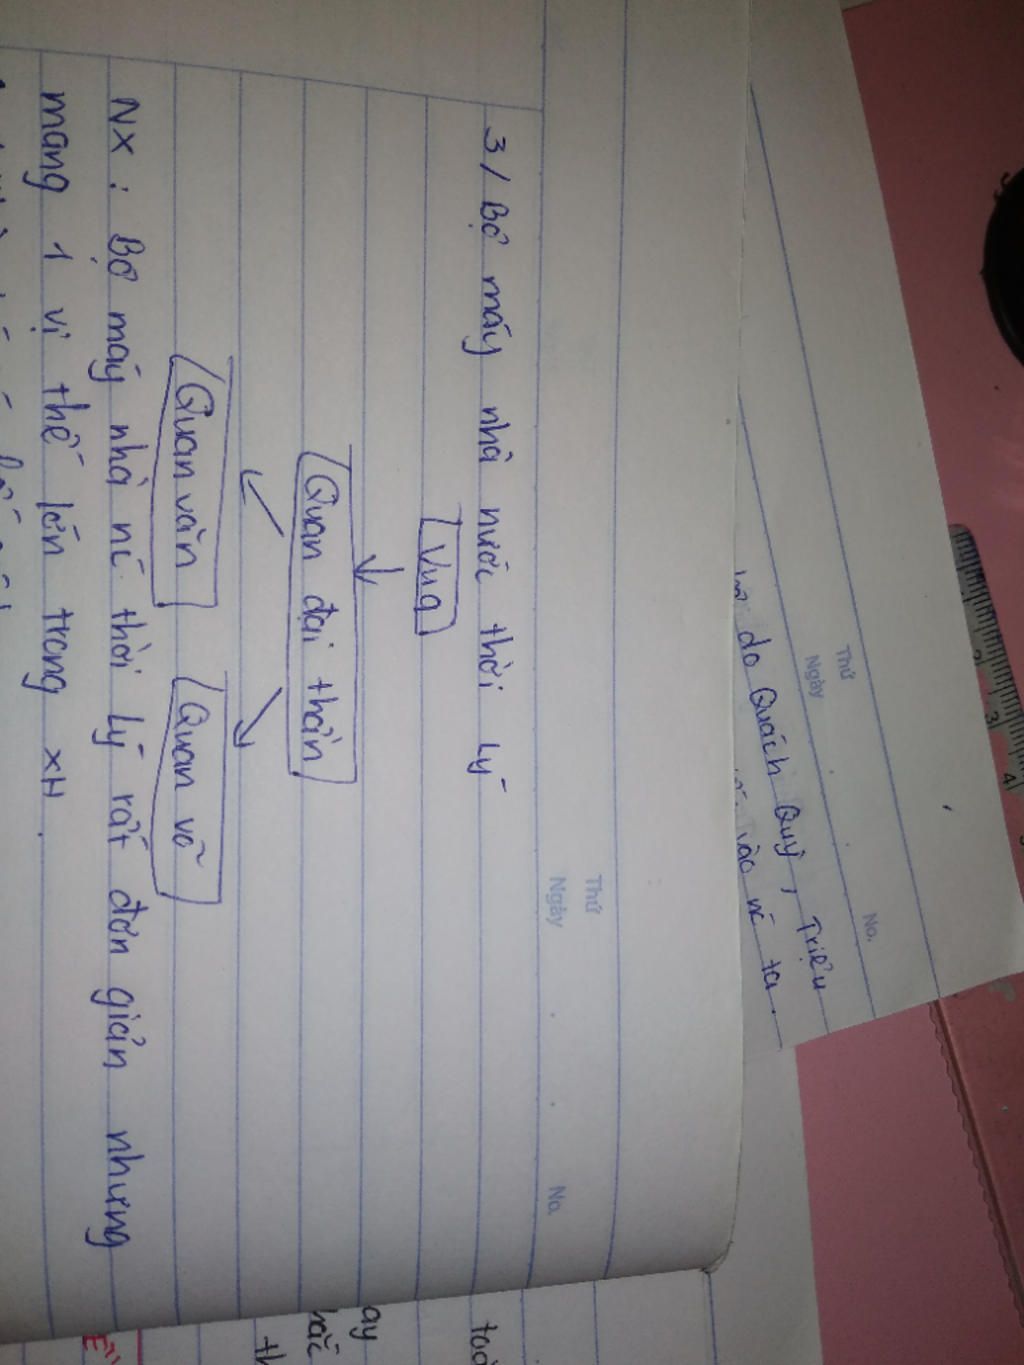 Thứ
Ngày
No.
do Quách Quỳ, Triệu
vào nc ta.
Thứ
Ngày
No.
3/ Bộ máy nhà nước thời Lý
Vua
Quan đại thần
Quan văn
Quan võ
NX: Bộ máy nhà nc thời Lý rất đơn giản nhưng
mang 1 vị thế lớn trong XH.
2
3
4